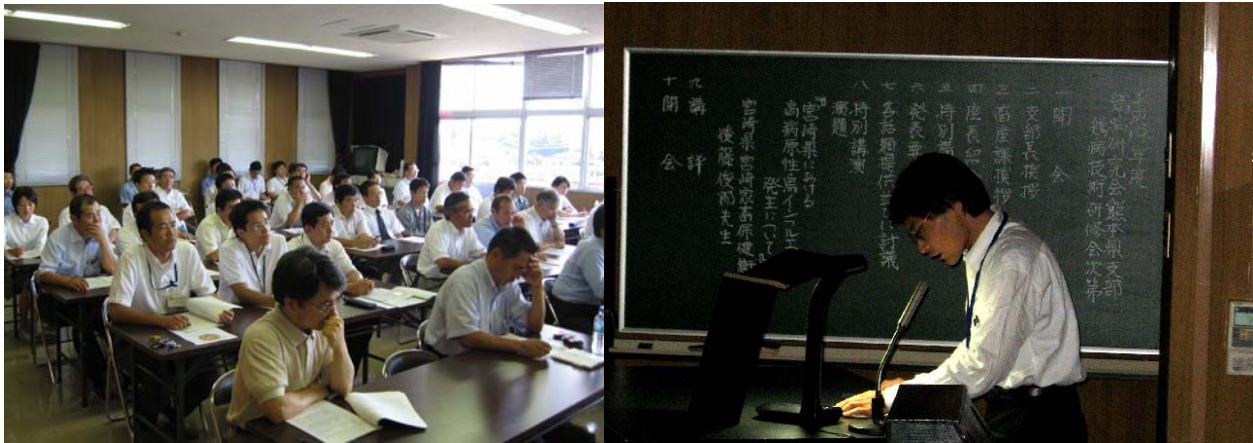 年度
鶏病研究会熊本県支部
鶏病技術研修会次第
一 開 会
二 支部長挨拶
三 畜産課挨拶
四 座長
五 特別
六 発表
七 各話題提供並びに討議
八 特別講演
演題
「宮崎県における
高病原性鳥インフルエ
発生について」
宮崎県宮崎家畜保健衛
後藤俊郎先生
九 講 評
十 閉 会